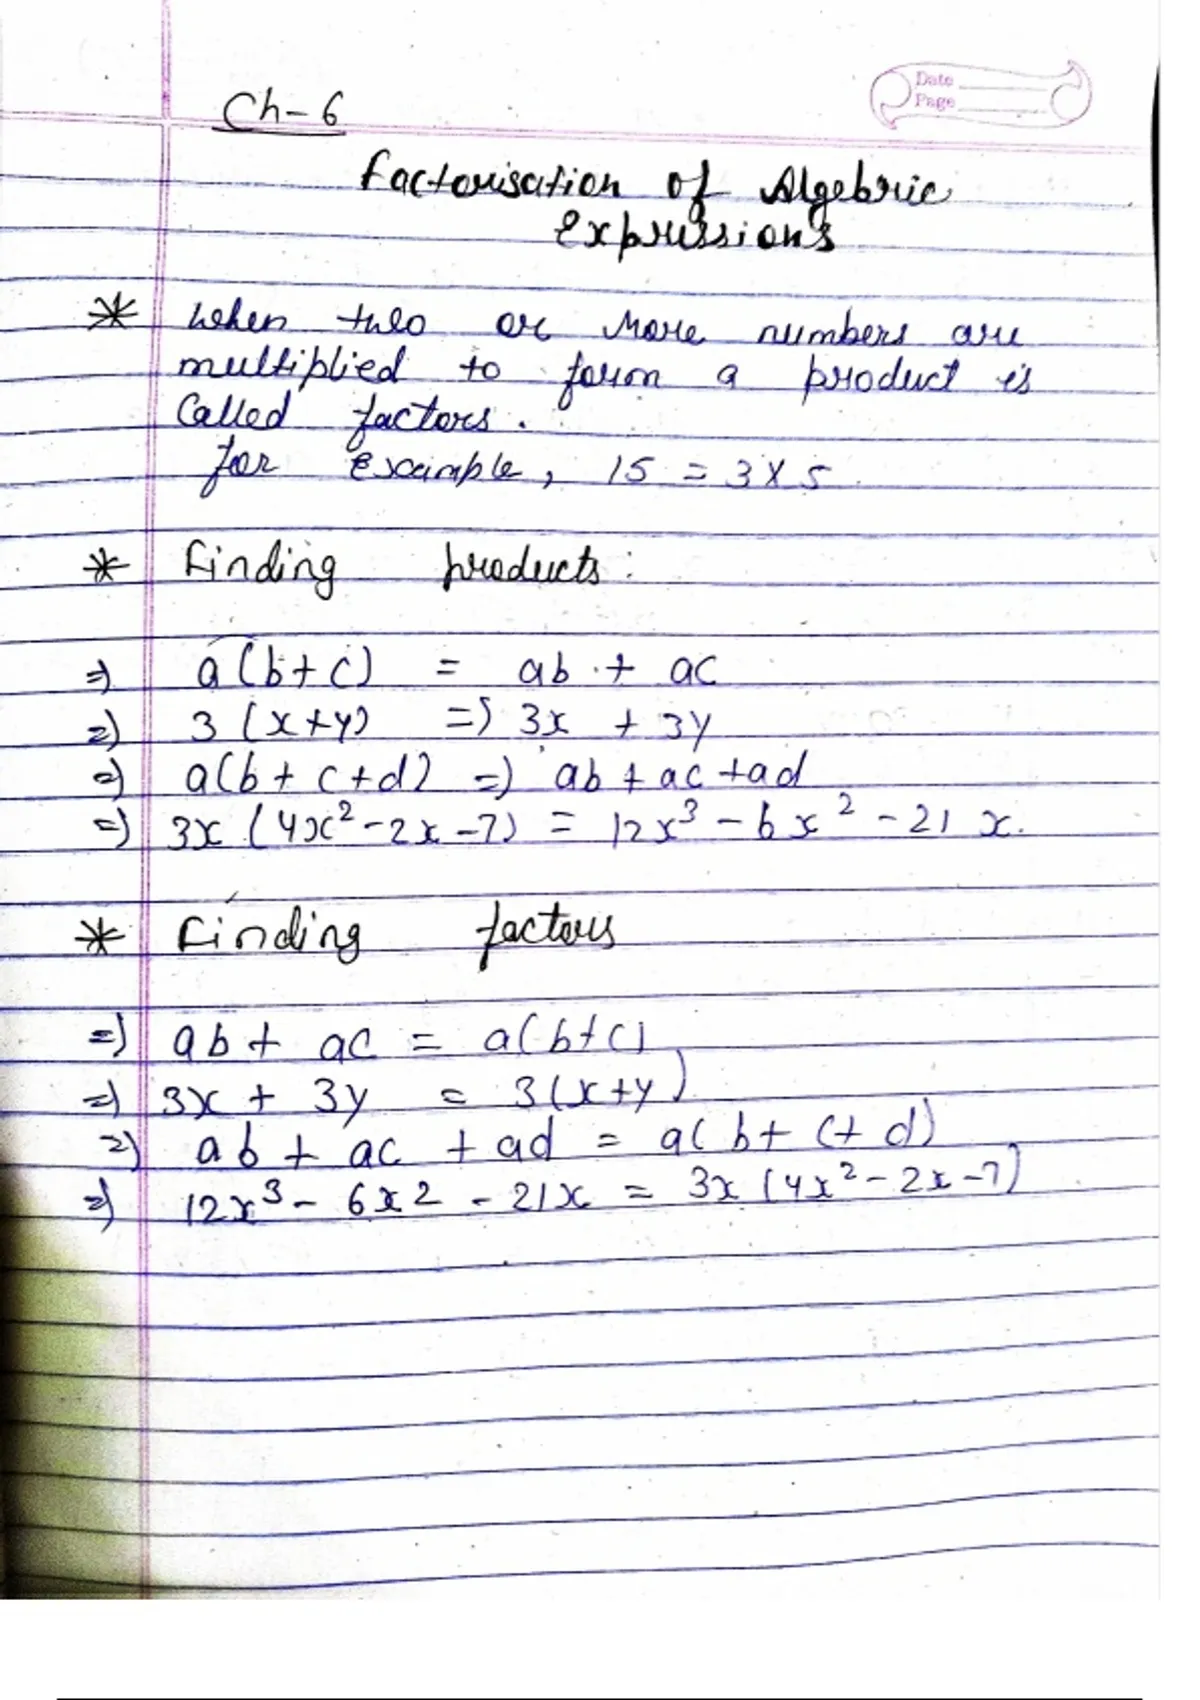 Date
Page
Ch-6
Factorisation of Algebric
Expressions
* When two or More numbers are
multiplied to form a product is
Called factors.
for Example, 15 = 3 X 5
* Finding products:
=) a(b+c) = ab + ac
=) 3(x+y) =) 3x + 3y
=) a(b+c+d) =) ab + ac + ad
=) 3x(4x²-2x-7) = 12x³ - 6x² - 21x.
* Finding factors
=) ab + ac = a(b+c)
=) 3x + 3y = 3(x+y)
=) ab + ac + ad = a(b+c+d)
=) 12x³ - 6x2 - 21x = 3x(4x²-2x-7)